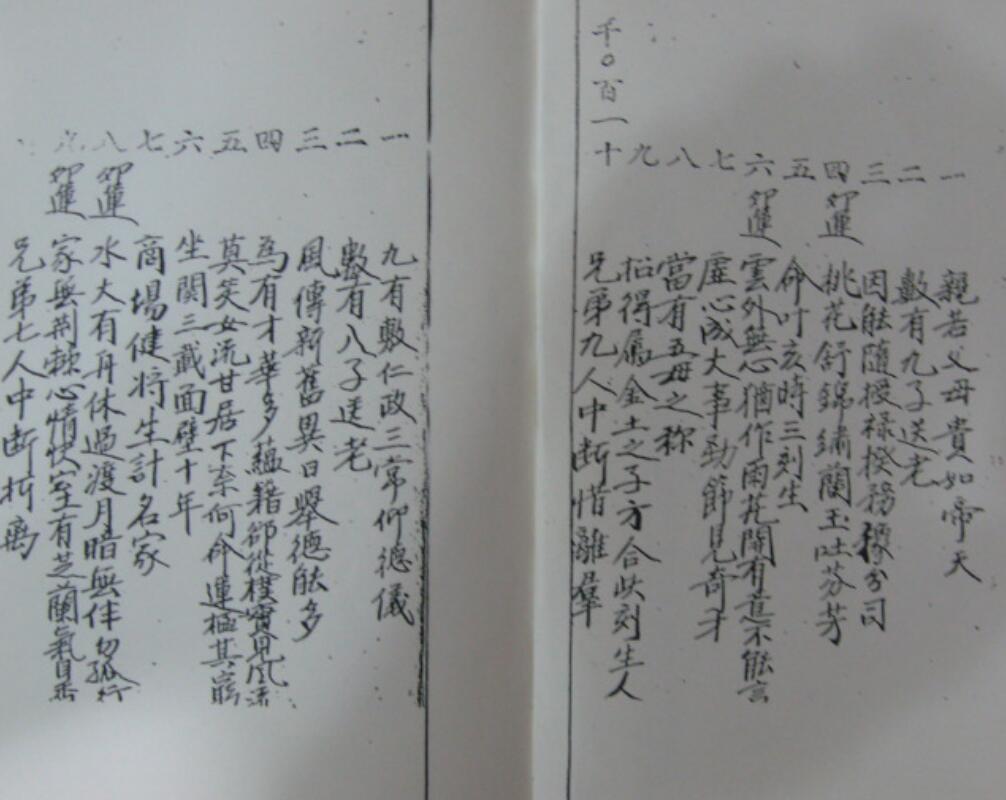 千〇百一十
一 親若父母貴如帝天
二 數有九子送老
三 因能隨授祿揆務豫分司
四 卯運 桃花舒錦繡蘭玉吐芬芳
五 命叶亥時三刻生
六 卯運 雲外無心猶作雨花開有意不能言
七 虛心成大事勁節見奇才
八 當有五母之称
九 松得屬金土之子方合此刻生人
十 兄弟九人中断惜離羣
一 九有敷仁政三常仰德儀
二 數有八子送老
三 風傳新舊異日舉德能多
四 為有才華多蘊籍卻從樸實見風流
五 莫笑女流甘居下奈何命運極其窮
六 坐関三載面壁十年
七 商場健将生計名家
八 卯運 水大有舟休過渡月暗無伴勿孤行
九 卯運 家無荆棘心情快室有芝蘭氣自香
兄弟七人中断折鴈